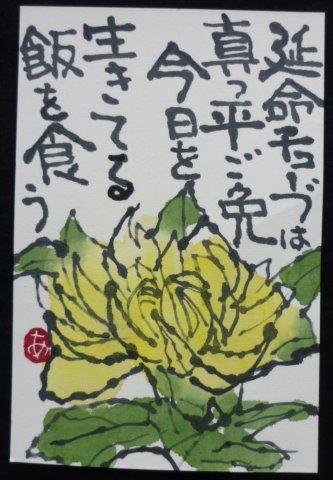 延命チューブは
真っ平ご免
今日を
生きてる
飯を食う
あ